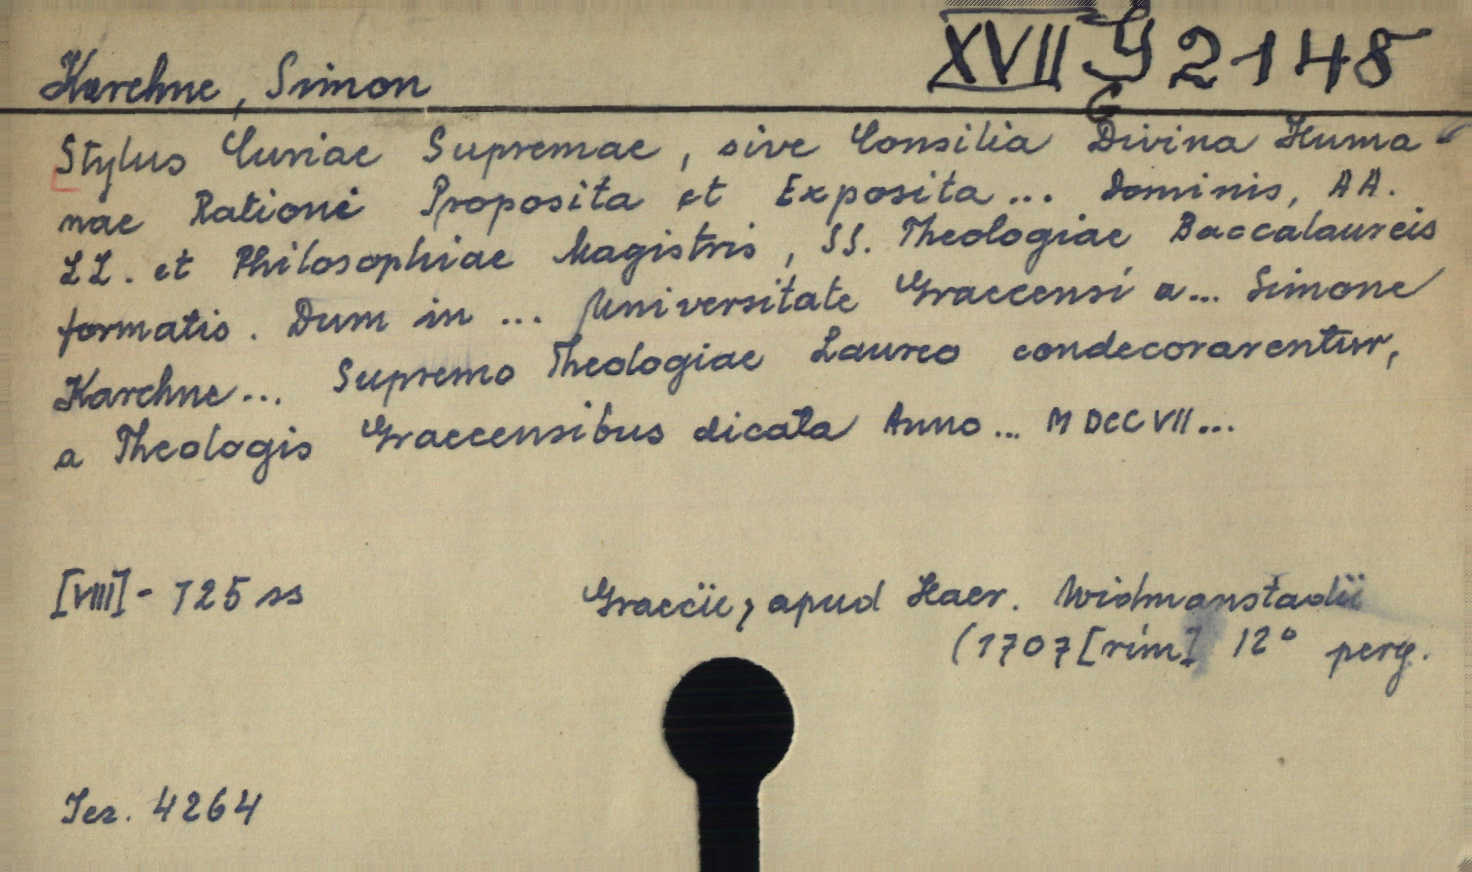 Karchne, Simon XVII G 2148
Stylus Curiae Supremae, sive Consilia Divina Huma
nae Rationi Proposita et Exposita... Dominis, AA.
LL. et Philosophiae Magistris, SS. Theologiae Baccalaureis
formatis. Dum in ... Universitate Graecensi a... Simone
Karchne... Supremo Theologiae Laureo condecorarentur,
a Theologis Graecensibus dicata Anno... MDCCVII...
[VIII] - 725 ss Graecii, apud Haer. Widmanstadii
(1707[rim] 12° perg.
Jez. 4264